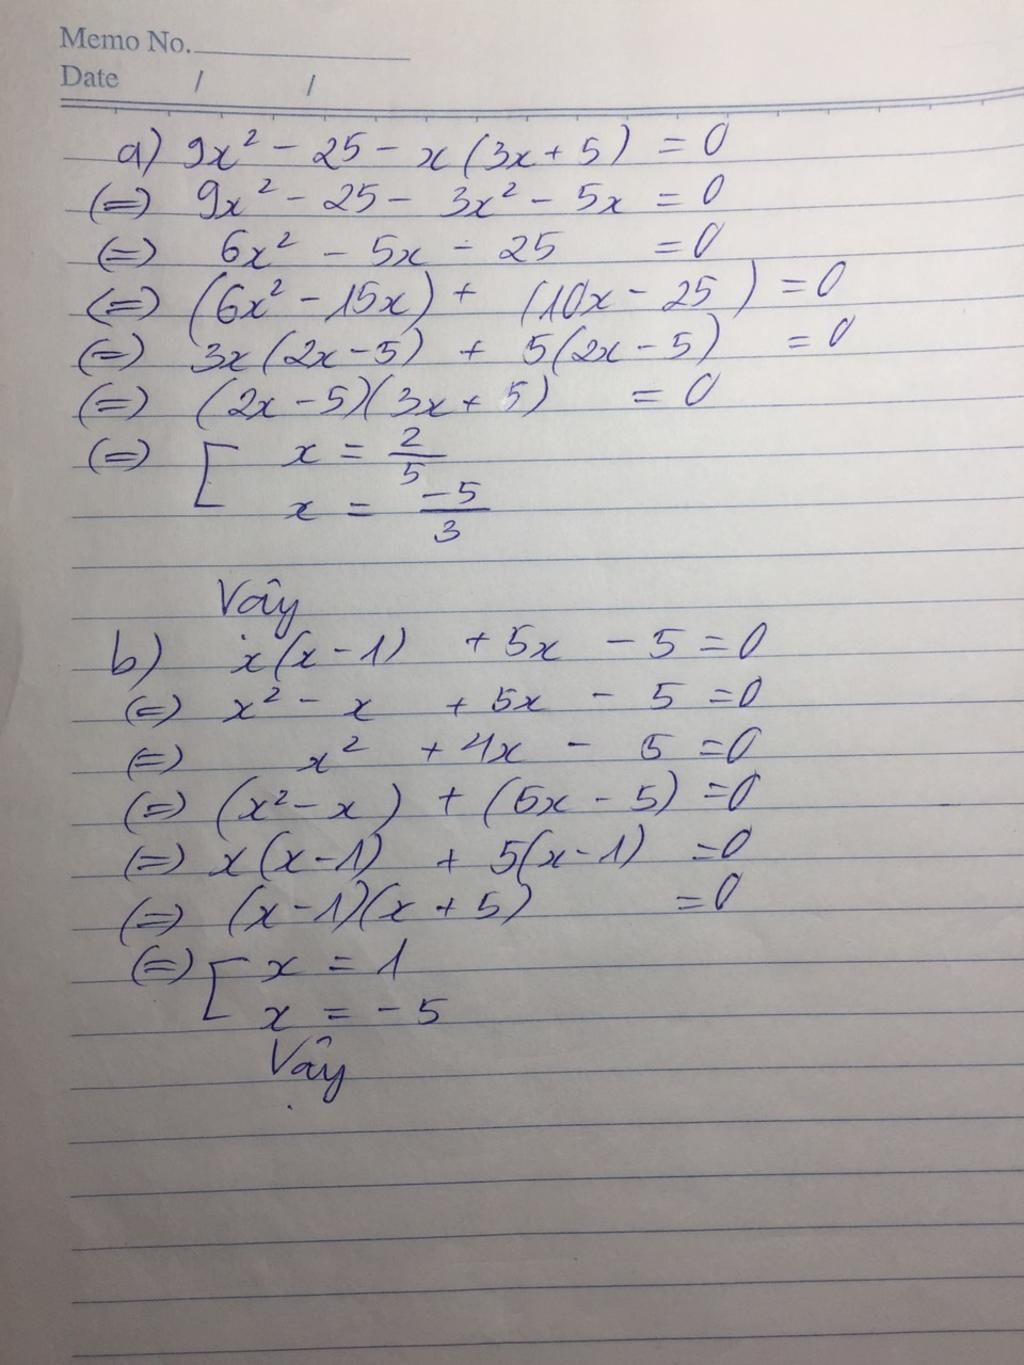 Memo No.
Date / /
a) 9x² - 25 - x(3x + 5) = 0
(=) 9x² - 25 - 3x² - 5x = 0
(=) 6x² - 5x - 25 = 0
(=) (6x² - 15x) + (10x - 25) = 0
(=) 3x(2x - 5) + 5(2x - 5) = 0
(=) (2x - 5)(3x + 5) = 0
(=) [ x = 2/5
x = -5/3
Vây
b) x(x - 1) + 5x - 5 = 0
(=) x² - x + 5x - 5 = 0
(=) x² + 4x - 5 = 0
(=) (x² - x) + (5x - 5) = 0
(=) x(x - 1) + 5(x - 1) = 0
(=) (x - 1)(x + 5) = 0
(=) [ x = 1
x = -5
Vây